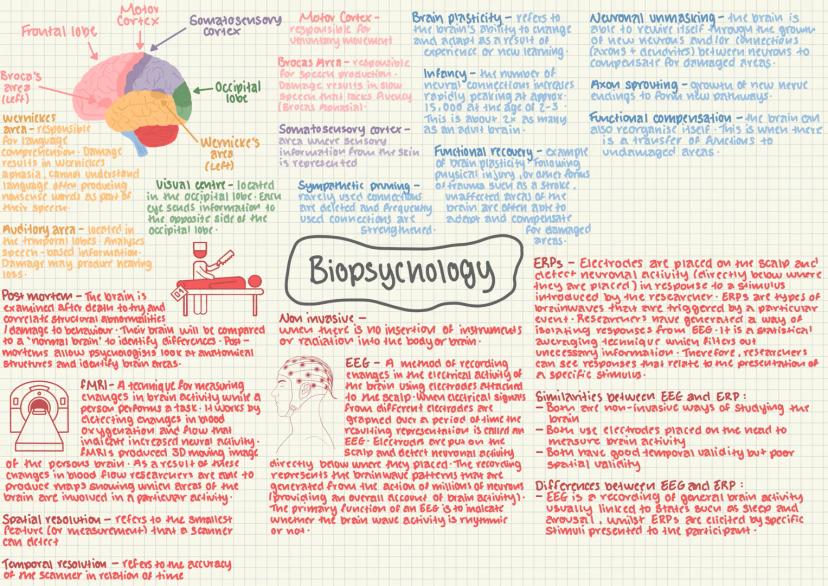 Motor
Cortex
Somatosensory
cortex
Frontal lobe
Broca's
area
(left)
Occipital
lobe
Wernicke's
area
(left)
Wernickes
area - responsible
for language
comprehension. Damage
results in Wernickes
aphasia, cannot understand
language often producing
nonsense words as part of
their speech.
Visual centre - located
in the occipital lobe. Each
eye sends information to
the opposite side of the
occipital lobe.
Auditory area - located in
the temporal lobes. Analyses
speech-based information.
Damage may produce hearing
loss.
Motor Cortex -
responsible for
voluntary movement
Brocas Area - responsible
for speech production.
Damage results in slow
speech that lacks fluency
(Brocas Aphasia).
Somatosensory cortex -
area where sensory
information from the skin
is represented
Sympathetic pruning -
rarely used connections
are deleted and frequently
used connections are
strengthened.
Brain plasticity - refers to
the brain's ability to change
and adapt as a result of
experience or new learning.
Infancy - the number of
neural connections increases
rapidly peaking at approx.
15,000 at the age of 2-3.
This is about 2x as many
as an adult brain.
Functional recovery - example
of brain plasticity. Following
physical injury, or other forms
of trauma such as a stroke,
unaffected areas of the
brain are often able to
adapt and compensate
for damaged
areas.
Neuronal unmasking - the brain is
able to rewire itself through the growth
of new neurons and/or connections
(axons + dendrites) between neurons to
compensate for damaged areas.
Axon sprouting - growth of new nerve
endings to form new pathways.
Functional compensation - the brain can
also reorganise itself. This is when there
is a transfer of functions to
undamaged areas.
Biopsychology
Post mortem - The brain is
examined after death to try and
correlate structural abnormalities
/damage to behaviour. Their brain will be compared
to a 'normal brain' to identify differences. Post-
mortems allow psychologists look at anatomical
structures and identify brain areas.
fMRI - A technique for measuring
changes in brain activity while a
person performs a task. It works by
detecting changes in blood
oxygenation and flow that
indicate increased neural activity.
fMRIs produced 3D moving image
of the persons brain. As a result of these
changes in blood flow researchers are able to
produce maps showing which areas of the
brain are involved in a particular activity.
Spatial resolution - refers to the smallest
feature (or measurement) that a scanner
can detect
Temporal resolution - refers to the accuracy
of the scanner in relation of time
Non invasive -
when there is no insertion of instruments
or radiation into the body or brain.
EEG - A method of recording
changes in the electrical activity of
the brain using electrodes attached
to the scalp. When electrical signals
from different electrodes are
graphed over a period of time the
resulting representation is called an
EEG. Electrodes are put on the
scalp and detect neuronal activity
directly below where they placed. The recording
represents the brainwave patterns that are
generated from the action of millions of neurons
(providing an overall account of brain activity).
The primary function of an EEG is to indicate
whether the brain wave activity is rhythmic
or not.
ERPs - Electrodes are placed on the scalp and
detect neuronal activity (directly below where
they are placed) in response to a stimulus
introduced by the researcher. ERPs are types of
brainwaves that are triggered by a particular
event. Researchers have generated a way of
isolating responses from EEG. It is a statistical
averaging technique which filters out
unnecessary information. Therefore, researchers
can see responses that relate to the presentation of
a specific stimulus.
Similarities between EEG and ERP:
- Both are non-invasive ways of studying the
brain
- Both use electrodes placed on the head to
measure brain activity
- Both have good temporal validity but poor
spatial validity
Differences between EEG and ERP:
- EEG is a recording of general brain activity
usually linked to states such as sleep and
arousal, whilst ERPs are elicited by specific
stimuli presented to the participant.